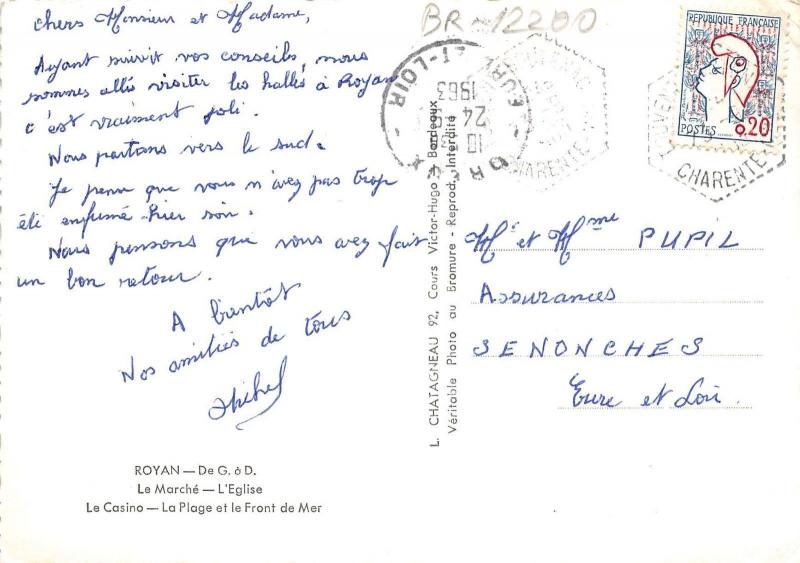 BR-12200
chers Monsieur et Madame,
Ayant suivit vos conseils, nous
sommes allés visiter les halles à Royan
c'est vraiment joli.
Nous partons vers le sud.
Je pense que vous n'avez pas trop
été enfumé hier soir.
Nous pensons que vous avez fait
un bon retour.
A bientôt
Nos amitiés de tous
Michel
ROYAN — De G. à D.
Le Marché — L'Eglise
Le Casino — La Plage et le Front de Mer
L. CHATAGNEAU 92, Cours Victor-Hugo - Bordeaux
Véritable Photo au Bromure - Reprod. Interdite
EURE-ET-LOIR
10
24
1963
CHARENTE
CHARENTE
RÉPUBLIQUE FRANÇAISE
POSTES 0,20
Mr et Mme PUPIL
Assurances
SENONCHES
Eure et Loir